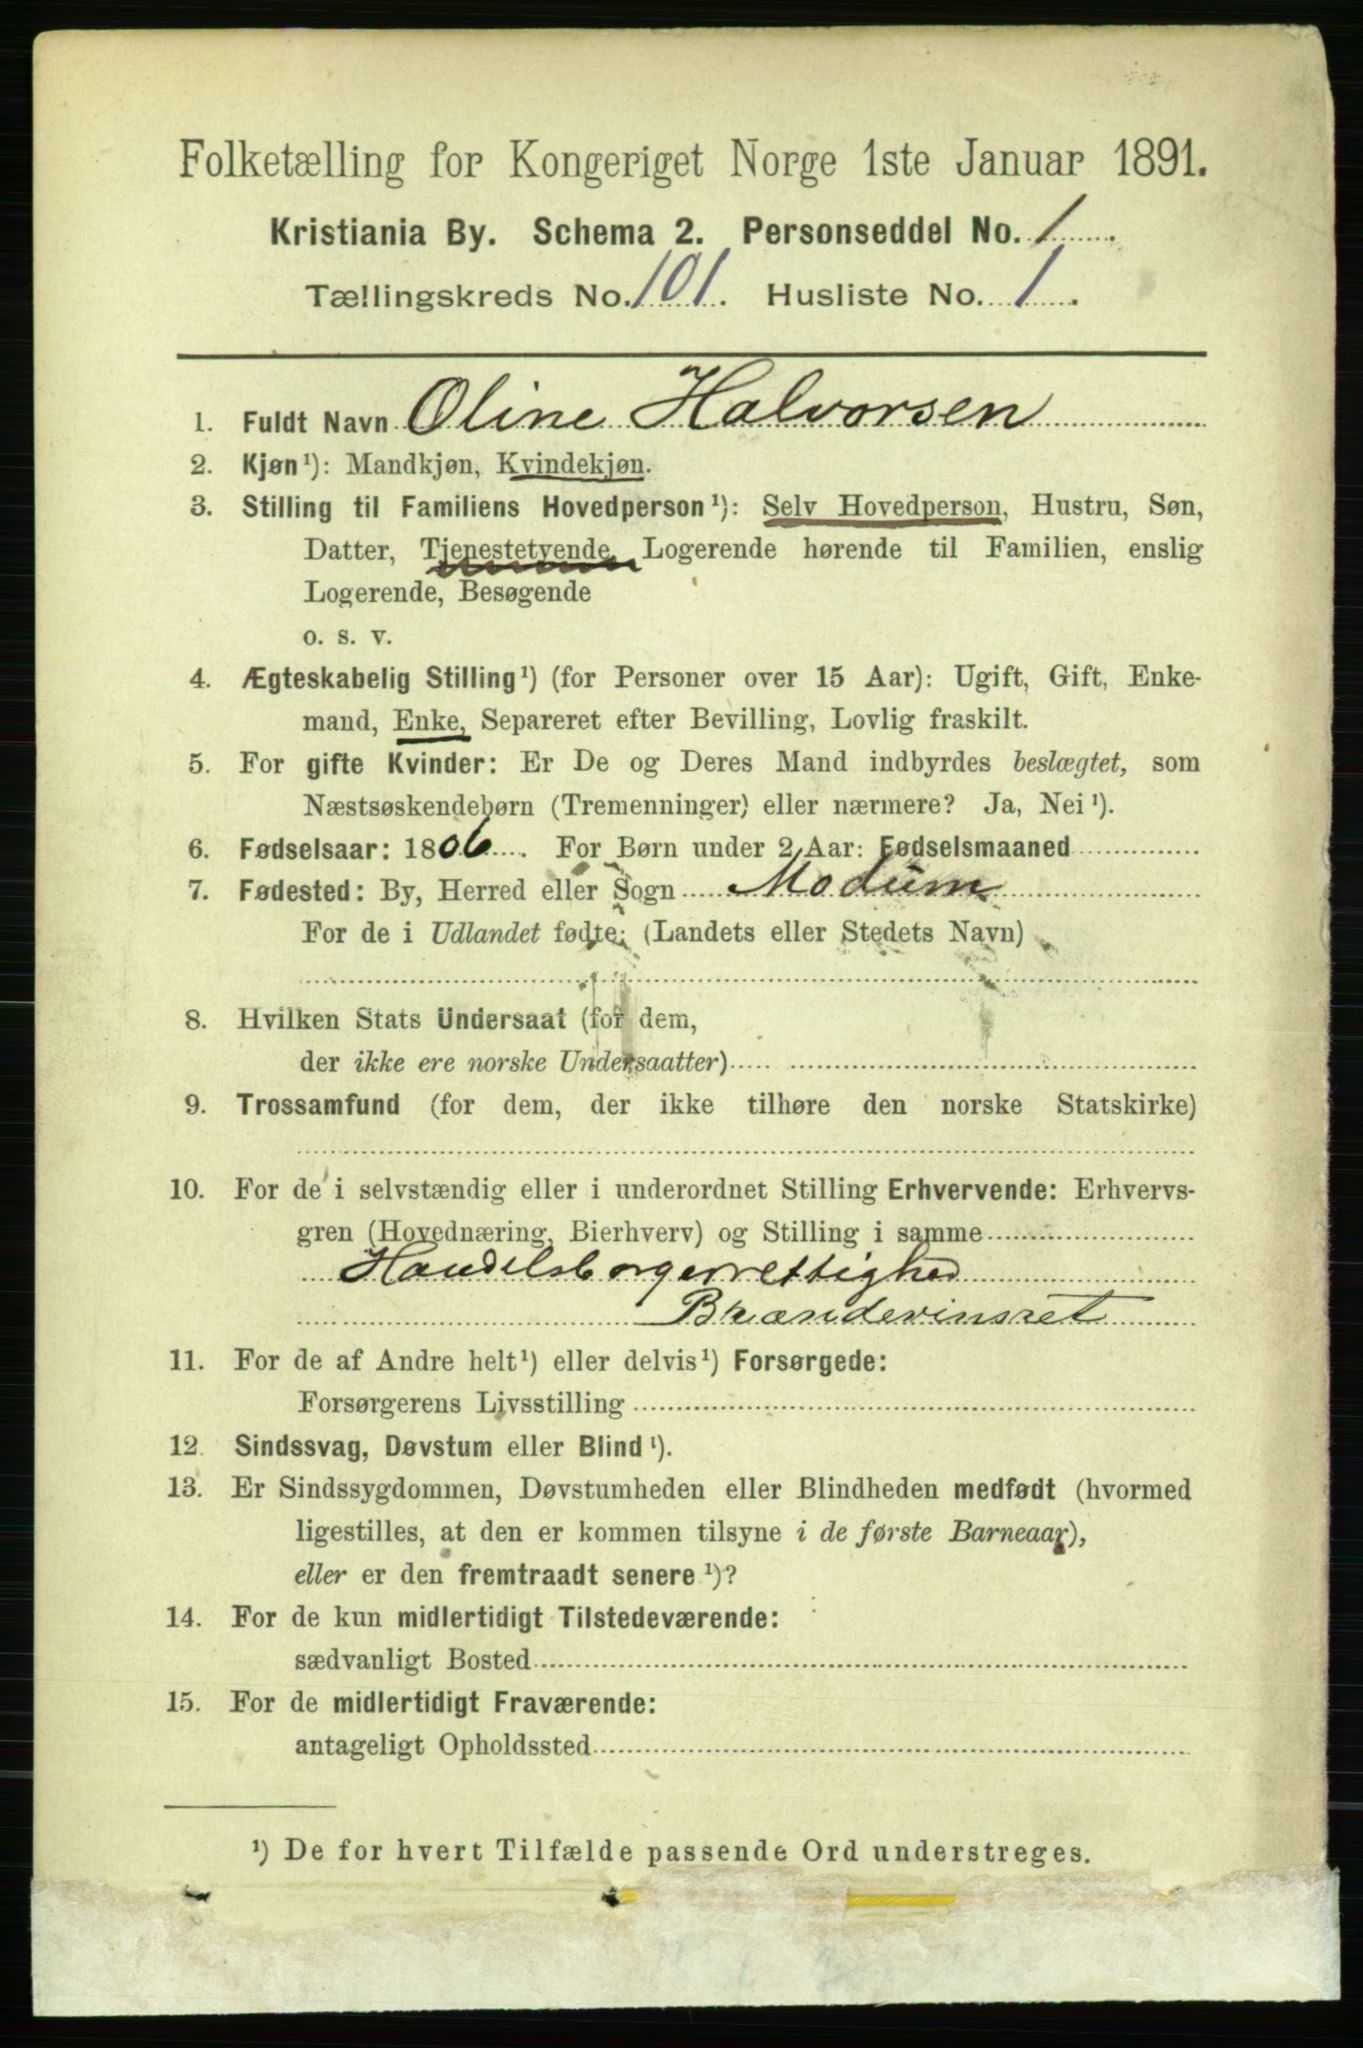 Folketælling for Kongeriget Norge 1ste Januar 1891.
Kristiania By. Schema 2. Personseddel No. 1.
Tællingskreds No. 101. Husliste No. 1.
1. Fuldt Navn Oline Halvorsen
2. Kjøn¹): Mandkjøn, Kvindekjøn.
3. Stilling til Familiens Hovedperson¹): Selv Hovedperson, Hustru, Søn,
Datter, Tjenestetyende, Logerende hørende til Familien, enslig
Logerende, Besøgende
o. s. v.
4. Ægteskabelig Stilling¹) (for Personer over 15 Aar): Ugift, Gift, Enke-
mand, Enke, Separeret efter Bevilling, Lovlig fraskilt.
5. For gifte Kvinder: Er De og Deres Mand indbyrdes beslægtet, som
Næstsøskendebørn (Tremenninger) eller nærmere? Ja, Nei¹).
6. Fødselsaar: 1806. For Børn under 2 Aar: Fødselsmaaned
7. Fødested: By, Herred eller Sogn Modum
For de i Udlandet fødte: (Landets eller Stedets Navn)
8. Hvilken Stats Undersaat (for dem,
der ikke ere norske Undersaatter)
9. Trossamfund (for dem, der ikke tilhøre den norske Statskirke)
10. For de i selvstændig eller i underordnet Stilling Erhvervende: Erhvervs-
gren (Hovednæring, Bierhverv) og Stilling i samme
Handelsborgerrettighed
Brændevinsret
11. For de af Andre helt¹) eller delvis¹) Forsørgede:
Forsørgerens Livsstilling
12. Sindssvag, Døvstum eller Blind¹).
13. Er Sindssygdommen, Døvstumheden eller Blindheden medfødt (hvormed
ligestilles, at den er kommen tilsyne i de første Barneaar),
eller er den fremtraadt senere¹)?
14. For de kun midlertidigt Tilstedeværende:
sædvanligt Bosted
15. For de midlertidigt Fraværende:
antageligt Opholdssted
¹) De for hvert Tilfælde passende Ord understreges.